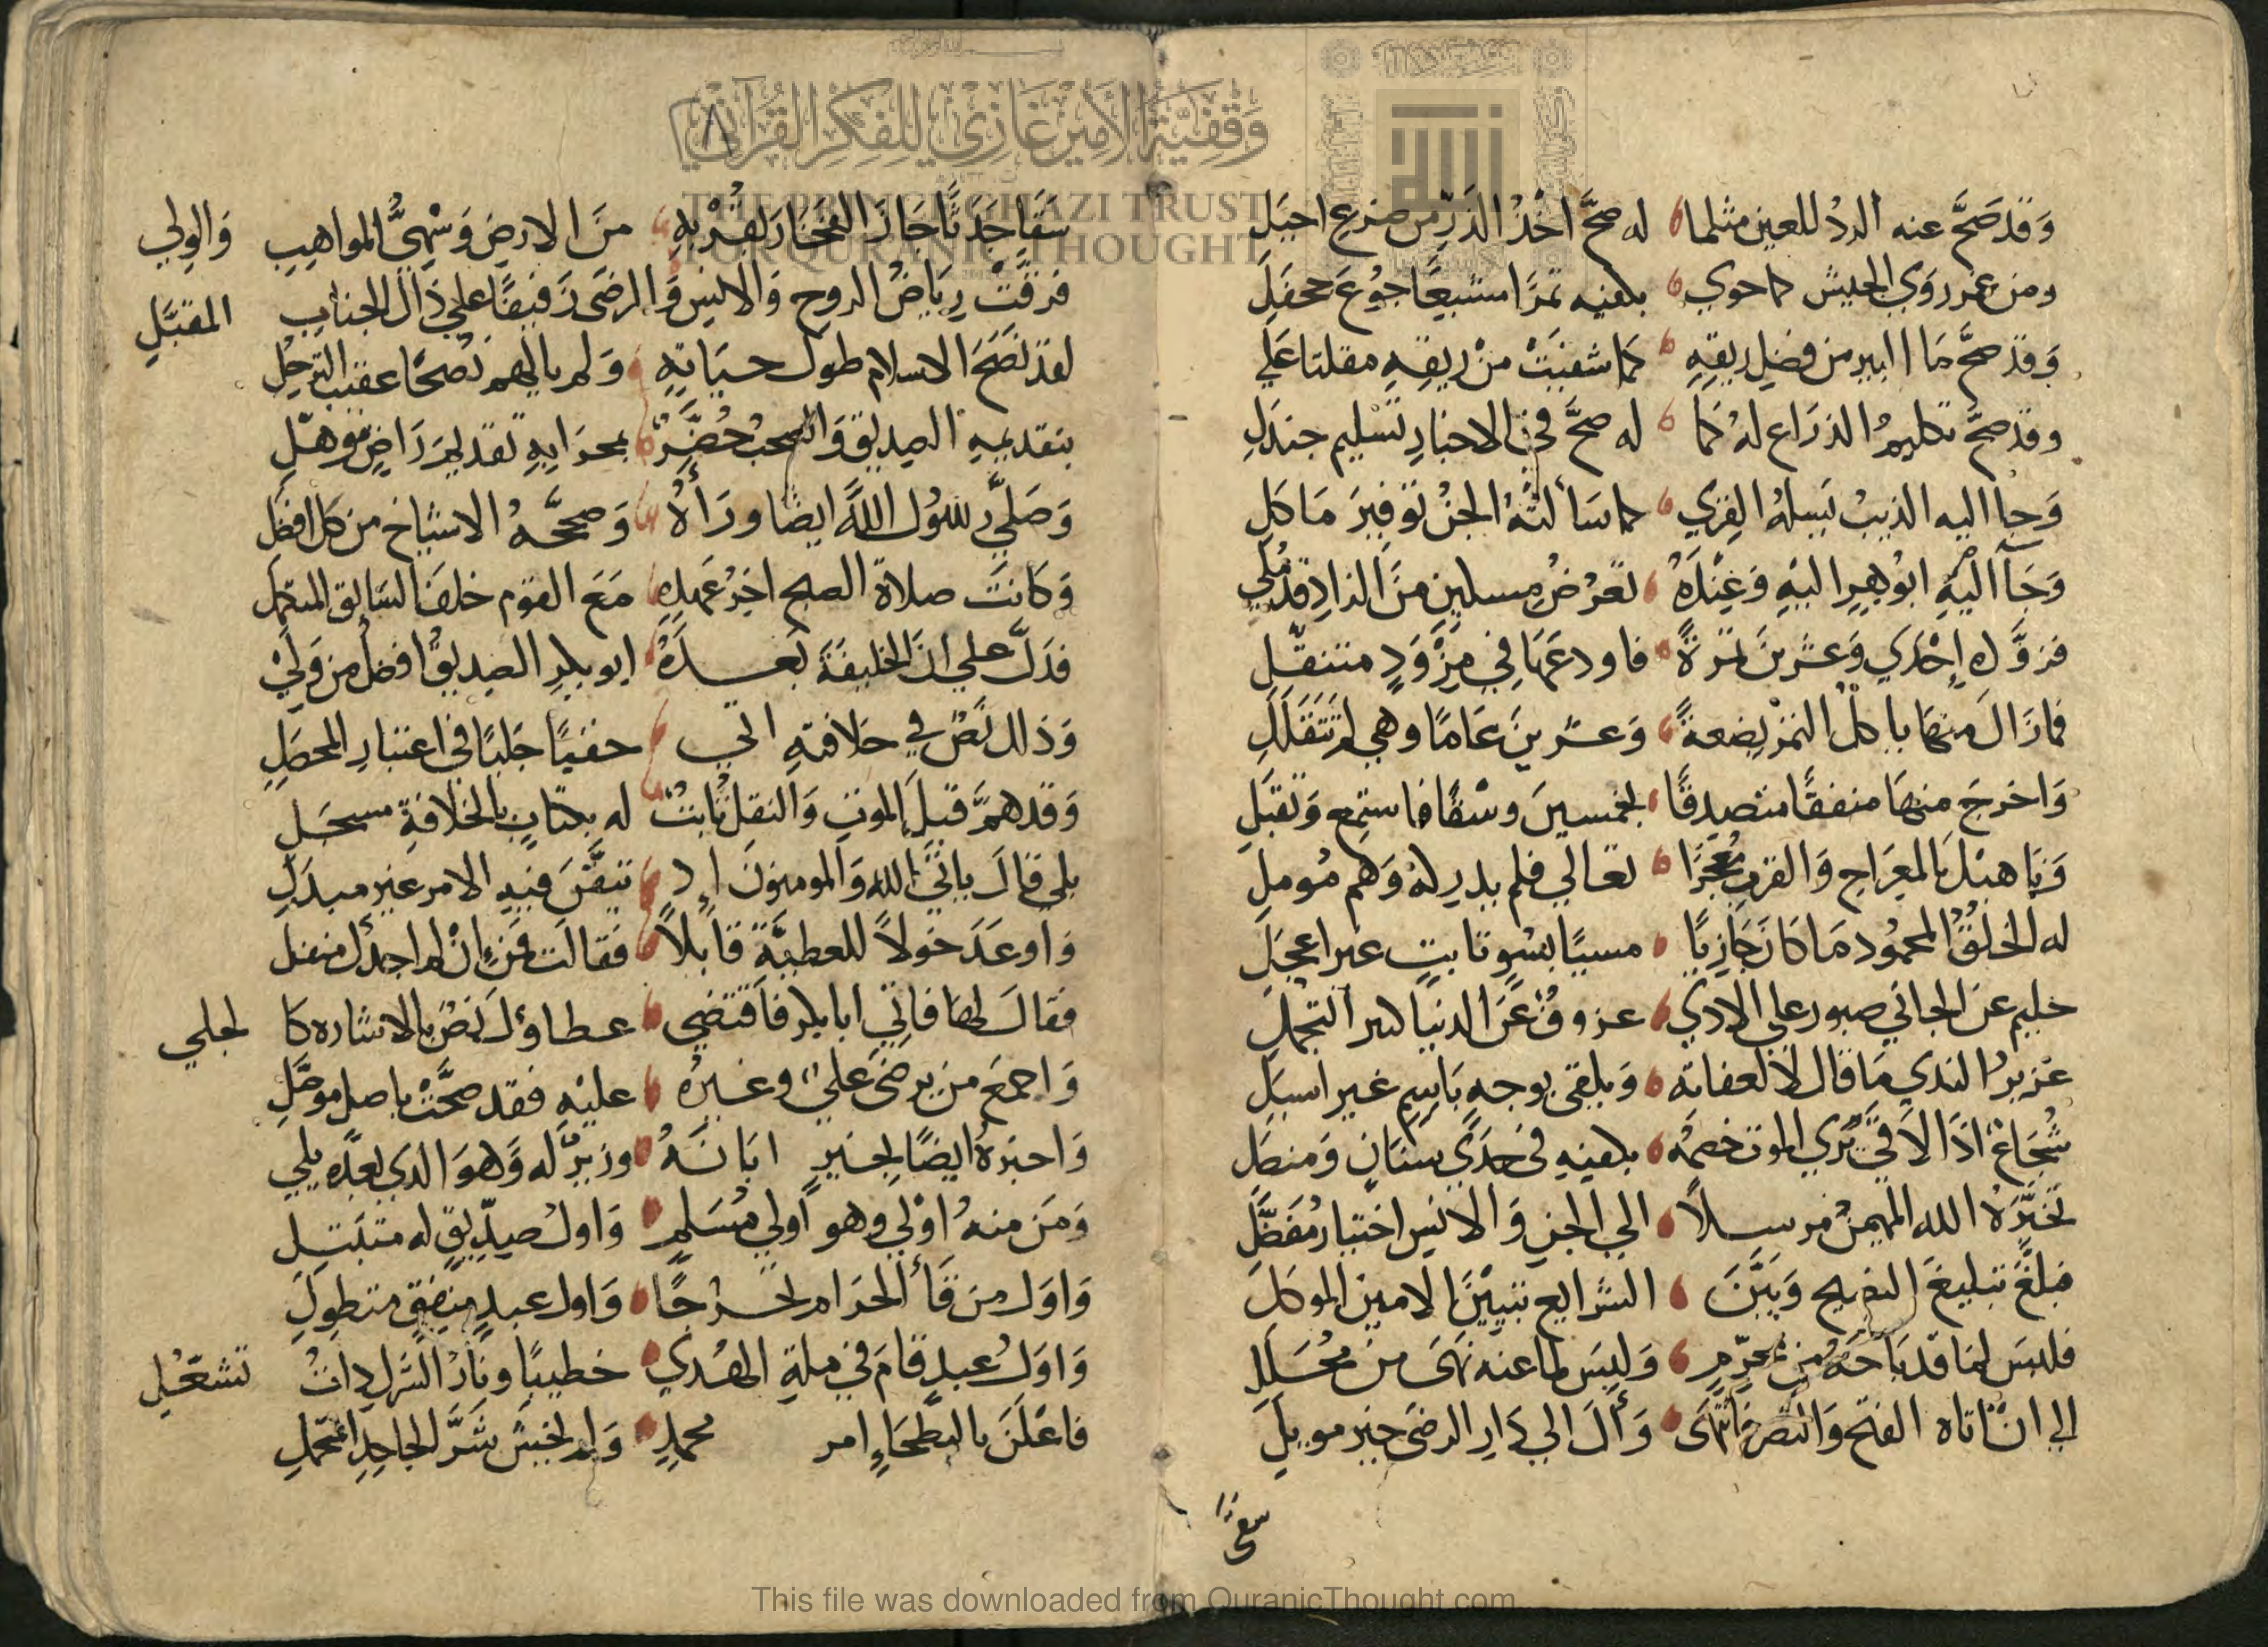 وَقَدْ صَحَّ عنه الردُ للعين مثلما له صحَّ اخْذُ الدَرِّ من ضرع احبَلِ
ومن عمر روَي الجيش كما حوي بكفيه تمرًا مشبعًا جوُعَ جحفَلِ
وَقدْ صحَّ مَا البير من فضلِ ريقِهِ كما شفيَتْ منْ ريقِهِ مقلتا عَلي
وقدْ صحَّ تكليمُ الذرَاع لهُ كما له صحَّ في الاخبارِ تسْليم جندَلِ
وَجا اليه الذيبُ يَسلهُ القِري كما سَألتْهُ الجنُ توْفيرَ مَاكَلِ
وَجَآ اليْهِ ابوُ هِرٍ اليْهِ وَعِنْدَهُ تعَرْضُ مسلمينِ منَ الزادِ قد مُلي
فزوَّده إحْدَي وَعشرينَ تمرَةً فاودعَهَا في مِزْوَدٍ متنقّلِ
فمازَالَ منهَا ياكلُ التمرْ بضعةً وَعشرينَ عَامًا وهي لم تَتَقلَلِ
وَاخرجَ منهَا منفقًا متصدِقًا بخمسينَ وسْقًا فاستمع وَتقبَلِ
وَناهيْكَ بالمعِرَاجِ وَالقربِ مُعْجِزًا تعَالي فلم يدركهُ وَهم مُوملِ
له الخلقُ المحمُود مَا كانَ جَازيًا مسيًا بسُوِ تابتٍ غير اعجَلِ
حليم عن الجاني صبور علي الاذي عزوفٌ عَنَ الدنيا كثير التجمُلِ
غزيرُ الندي مَا قال لا لعفاته وَيلقى بوجهٍ باسمٍ غير اسبَلِ
شجَاعٌ اذَا لاقَي يُري الموت خصمَهُ بكفيهِ في حَدَّي سنَانٍ وَمنصَلِ
تخَيَّرَهُ الله المهيمنُ مرسلاً الي الجنِ وَالانسِ اختيار مُفَضَّلِ
فبلغَّ تبليغَ النصيح وَبيَّنَ الشرايع تبيْينَ الامين الموكلَ
فليسَ لمَا قدْ بَاحَهُ من محَرِّمٍ وَليسَ لما عنه نهَىَ من مُحَلَلِ
الي انْ اتاه الفتح وَالنصر فانتهَى وَألَ الي دَارِ الرضى خير مويلَ
سقيً
٨
سَقَيًا جَدَثًا حَازَ الفخَارَ بقُرْبهِ منَ الارضِ وَسْمِيُّ المواهبِ وَالولي
فرفَّتْ رِيَاضُ الروحِ وَالانسِ وَالرضَى رَفيفًا علي ذاك الجنابِ المقبَّلِ
لقدْ نصَحَ الاسلام طول حيَاتِهِ وَلم يالهم نُصْحًا عقيب الترحُّل
بتقديمهِ الصديق وَالصحبُ حُضَّرٌ بمحرَابهِ تقديمَ رَاضٍ موهّلِ
وَصَلَّي رسُول اللهِ ايضًا ورَأهُ وَصححّهُ الاشياخ من كل افضَل
وَكانَتْ صلاة الصبح اخِرُ عَهدِهِ مَعَ القوم خلفَ السَابق المتمهل
فدَلَّ علي انَ الخليفَة بَعدَهُ ابو بكرِ الصديقُ افضل من وَليْ
وَذاك نصٌّ في خلافتهِ اتي خفيًا جَليًا في اعتبارِ المحصَلِ
وَقدْ همَّ قبلَ الموتِ وَالنقل ثابتٌ له بكتابٍ بالخلافةِ مسجَلِ
بلي قالَ يابَي الله وَالمومنونَ ان تيقّنَ فيهِ الامر غير مبدَلِ
وَاوعَدَ خولاً للعطيَّةِ قابلاً فقالت فمَن انْ لم اجدْك منفل
فقالَ لها فاتي ابا بكر فاقتضي عطاؤك نصٌ بالاشاره كالجلي
وَاجمعَ من يرضىَ علي وغيرُه عليْهِ فقد صحَّتْ باصل موصَّلِ
وَاخبرهُ ايضًا بخيرٍ ابَانهُ وزيرٌ له وَهوَ الذي بعدَه يلي
وَمَن منهُ اوْلي وهو اولي مُسَلمٍ وَاولُ صِدِّيقٍ له متبَتِلِ
وَاوَل مَن قَأَ الحرَام تحَرُّجًا وَاول عبدٍ منفقٍ متطولِ
وَاوَلُ عبدٍ قامَ في ملةِ الهُدي خطيبًا ونارُ الشركِ ذاتُ تشعّلِ
فاعلَنَ بالبطحَاءِ امر محمدٍ وَلم يخشَ شَرَّ الجاحِدِ المتمحلِ